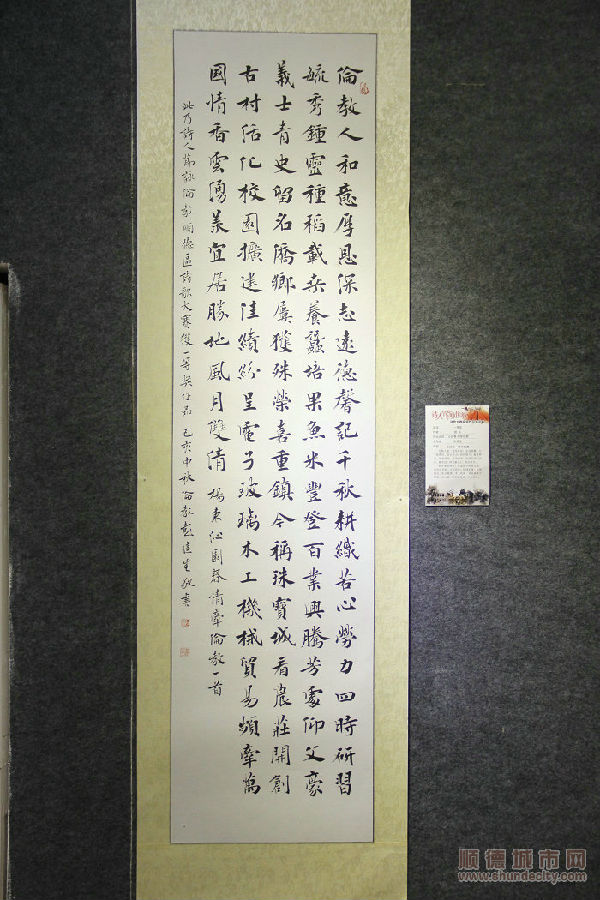 倫教人和意厚恩深志遠德馨記千秋耕織苦心勞力四時研習
毓秀鍾靈種稻栽桑養蠶培果魚米豐登百業興騰芳處仰文豪
義士青史留名僑鄉屢獲殊榮喜重鎮今稱珠寶城看農莊開創
古村活化校園擴建佳績紛呈電子玻璃木工機械貿易頻牽萬
國情香雲湧美宜居勝地風月雙清 楊東仙園春情牽倫教一首
此乃詩人 倫教順德區詩歌大賽獲一等奬作品 己亥中秋倫教 書
順德城市网
www.shundecity.com